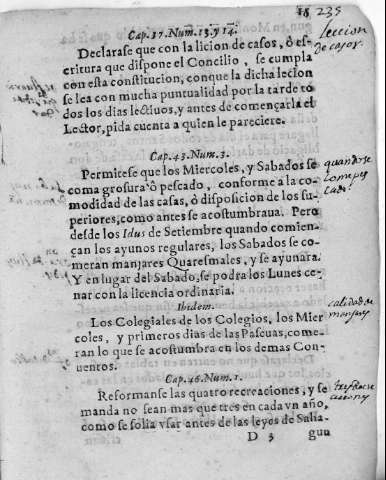 235
Cap.37.Num.13.y 14.
leccion
de casos.
Declarase que con la licion de casos, ò es-
critura que dispone el Concilio, se cumpla
con esta constitucion, conque la dicha lecion
se lea con mucha puntualidad por la tarde to
dos los dias lectiuos, y antes de començarla el
Lector, pida cuenta a quien le pareciere.
Cap.43.Num.3.
Permitese que los Miercoles, y Sabados se
coma grosura ò pescado, conforme a la co-
modidad de las casas, ò disposicion de los su-
periores, como antes se acostumbraua. Pero
desde los Idus de Setiembre quando comien-
çan los ayunos regulares, los Sabados se co-
meran manjares Quaresmales, y se ayunara.
Y en lugar del Sabado, se podra los Lunes ce-
nar con la licencia ordinaria.
quando se
come pes
cado
Ibidem.
Los Colegiales de los Colegios, los Mier
coles, y primeros dias de las Pascuas, come-
ran lo que se acostumbra en los demas Con-
uentos.
calidad de
manjares
Cap.46.Num.1.
Reformanse las quatro recreaciones, y se
manda no sean mas que tres en cada vn año,
como se solia vsar antes de las leyes de Salia-
D 3 gun